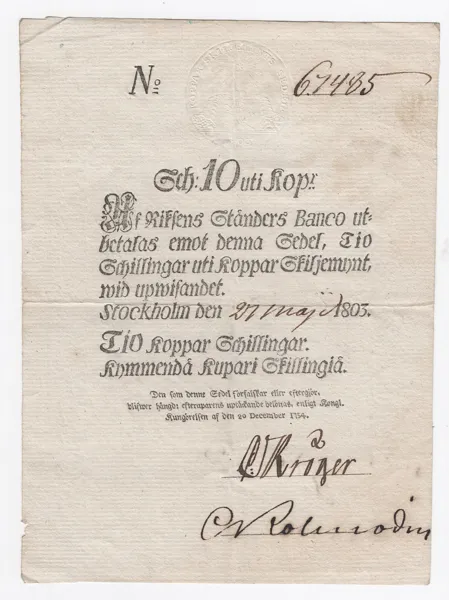 No 61485
Sch: 10 uti Kopr
Af Riksens Ständers Banco ut-
betalas emot denna Sedel, Tio
Schillingar uti Koppar Skiljemynt,
wid upwisandet.
Stockholm den 27 Maji 1803.
Tio Koppar Schillingar.
Kymmendä Kupari Skillingiä.
Den som denne Sedel förfalskar eller eftergiör,
blifwer hängd; efteraparens uptäckande belönas, enligt Kongl.
Kungörelsen af den 20 December 1754.
C Kröger